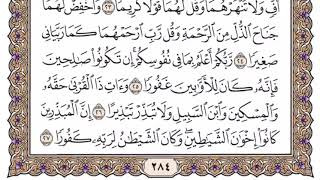 أُفٍّ وَلَا تَنْهَرْهُمَا وَقُل لَّهُمَا قَوْلًا كَرِيمًا ٢٣ وَاخْفِضْ لَهُمَا
جَنَاحَ الذُّلِّ مِنَ الرَّحْمَةِ وَقُل رَّبِّ ارْحَمْهُمَا كَمَا رَبَّيَانِي
صَغِيرًا ٢٤ رَّبُّكُمْ أَعْلَمُ بِمَا فِي نُفُوسِكُمْ إِن تَكُونُوا صَالِحِينَ
فَإِنَّهُ كَانَ لِلْأَوَّابِينَ غَفُورًا ٢٥ وَءَاتِ ذَا الْقُرْبَىٰ حَقَّهُ
وَالْمِسْكِينَ وَابْنَ السَّبِيلِ وَلَا تُبَذِّرْ تَبْذِيرًا ٢٦ إِنَّ الْمُبَذِّرِينَ
كَانُوا إِخْوَانَ الشَّيَاطِينِ وَكَانَ الشَّيْطَانُ لِرَبِّهِ كَفُورًا ٢٧
٢٨٤